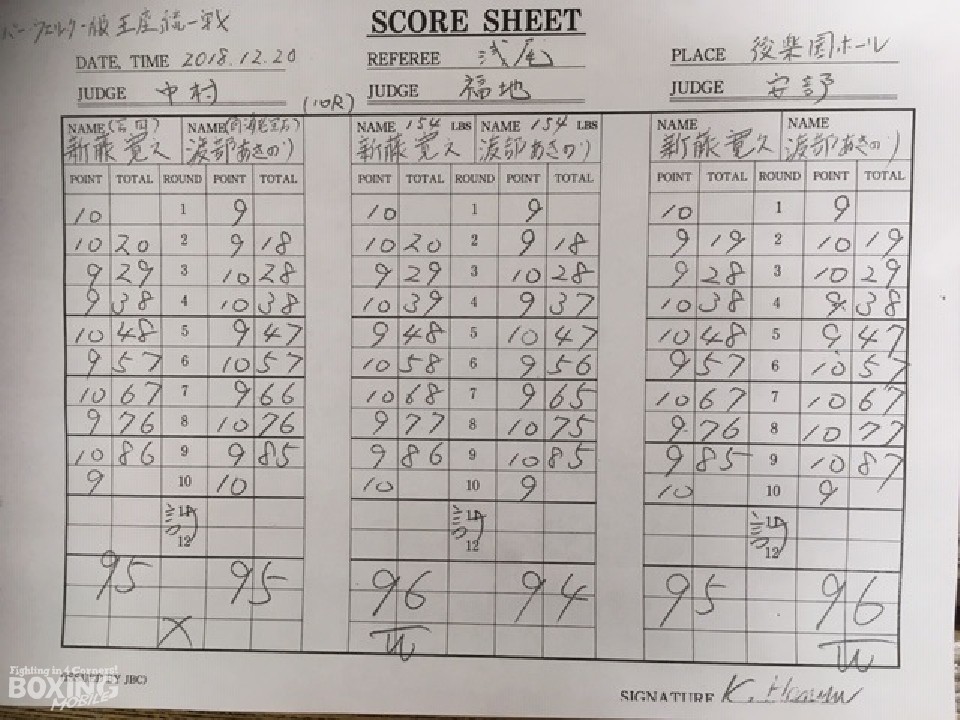 SCORE SHEET
王座統一戦
DATE, TIME 2018.12.20 REFEREE 浅尾 PLACE 後楽園ホール
JUDGE 中村 (10R) JUDGE 福地 JUDGE 安部
NAME (宮田) NAME NAME 154 LBS NAME 154 LBS NAME NAME
新藤寛久 渡部あきのり 新藤寛久 渡部あきのり 新藤寛久 渡部あきのり
POINT TOTAL ROUND POINT TOTAL POINT TOTAL ROUND POINT TOTAL POINT TOTAL ROUND POINT TOTAL
10 1 9 10 1 9 10 1 9
10 20 2 9 18 10 20 2 9 18 9 19 2 10 19
9 29 3 10 28 9 29 3 10 28 9 28 3 10 29
9 38 4 10 38 10 39 4 9 37 10 38 4 9 38
10 48 5 9 47 9 48 5 10 47 10 48 5 9 47
9 57 6 10 57 10 58 6 9 56 9 57 6 10 57
10 67 7 9 66 10 68 7 9 65 10 67 7 10 67
9 76 8 10 76 9 77 8 10 75 9 76 8 10 77
10 86 9 9 85 9 86 9 10 85 9 85 9 10 87
9 10 10 10 10 9 10 10 9
11 11 11
12 12 12
95 95 96 94 95 96
X W W
ISSUED BY JBC)
SIGNATURE K.
Fighting in 4 Corners!
BOXING
MOBILE